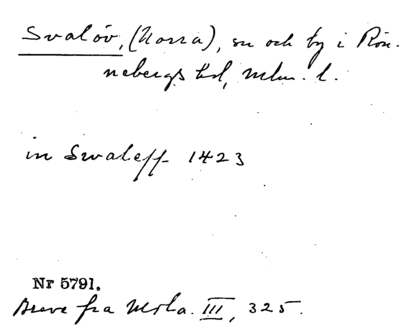 Svalöv, (Norra), sn och by i Rön-
nebergs hd, Mlm. l.
in Swaleff 1423
Nr 5791.
Breve fra Msla. III, 325.